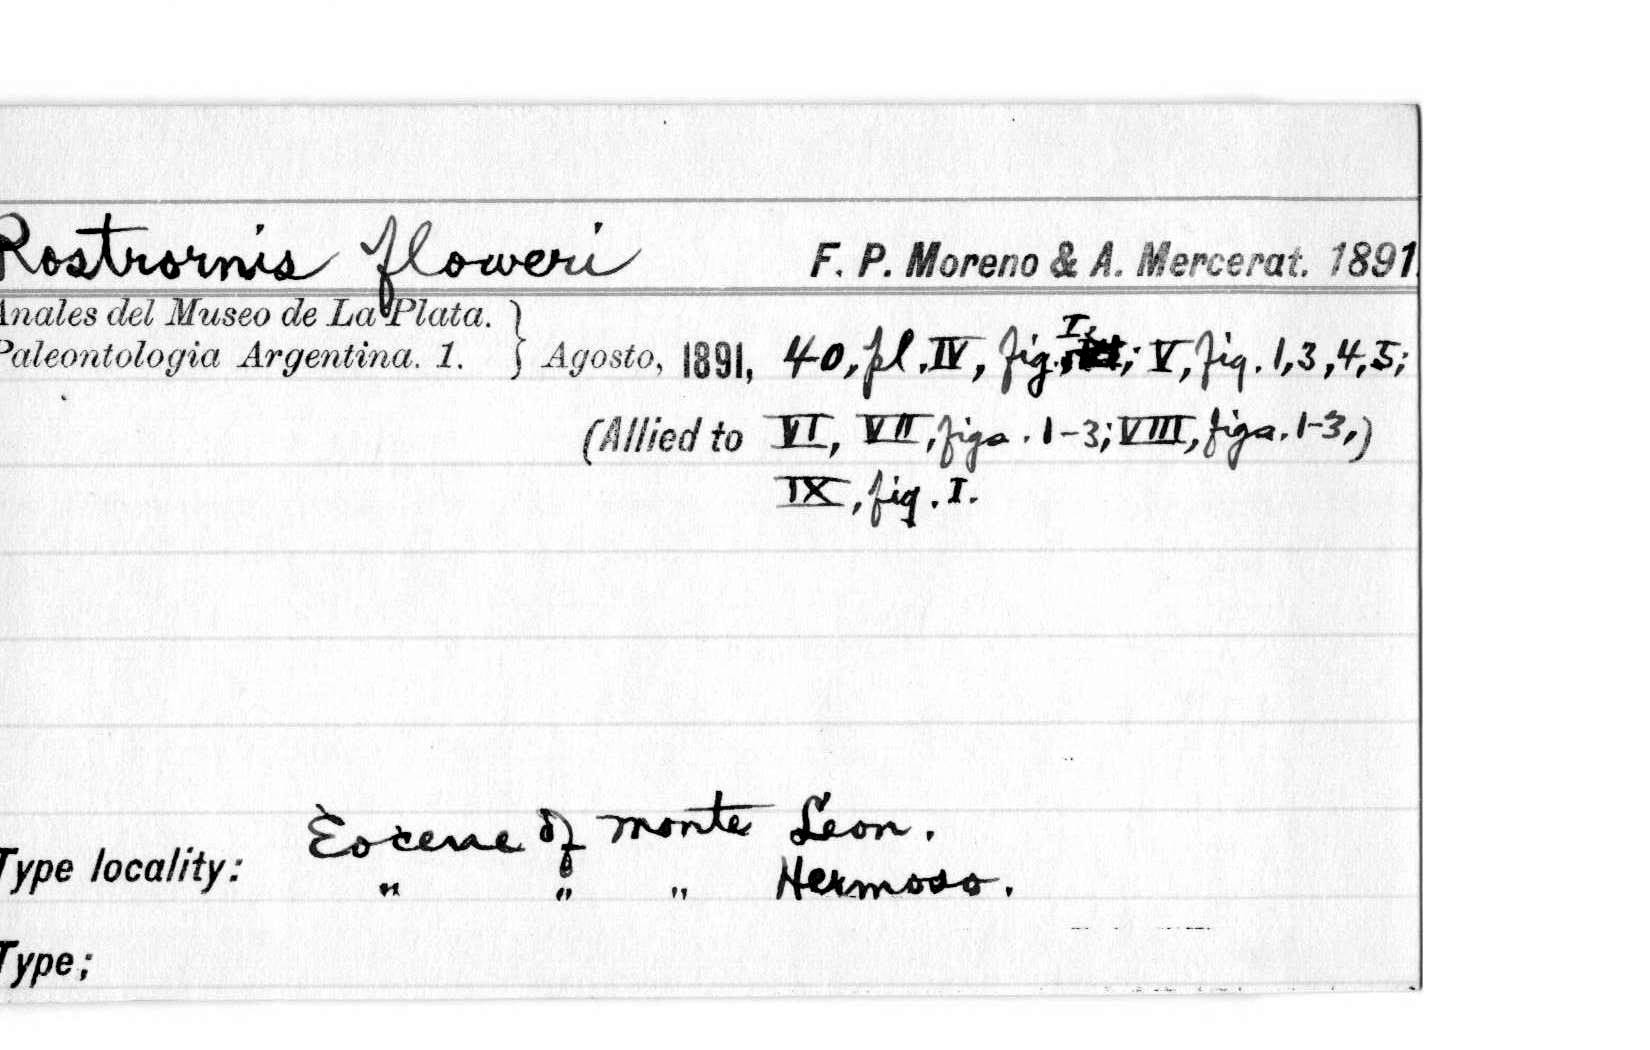 Rostrornis floweri F. P. Moreno & A. Mercerat. 1891.
Anales del Museo de La Plata.
Paleontologia Argentina. 1. } Agosto, 1891, 40, pl. IV, fig. I,; V, fig. 1,3,4,5;
(Allied to VI, VII, figs. 1-3; VIII, figs. 1-3,)
IX, fig. I.
Type locality: Eocene of Monte Leon.
" " " Hermoso.
Type;